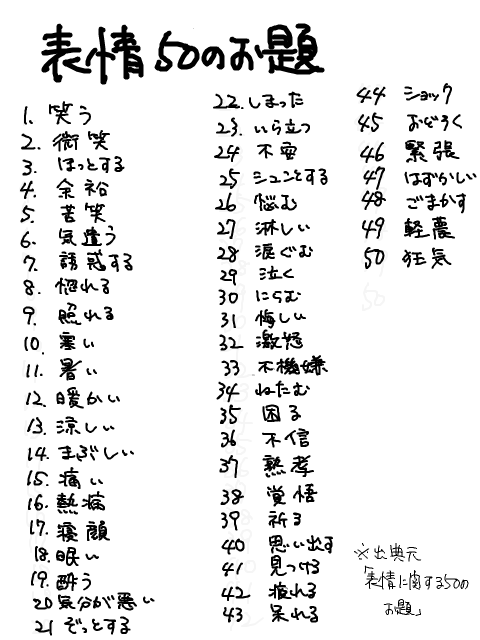 表情50のお題
1. 笑う
2. 微笑
3. ほっとする
4. 余裕
5. 苦笑
6. 気遣う
7. 誘惑する
8. 惚れる
9. 照れる
10. 寒い
11. 暑い
12. 暖かい
13. 涼しい
14. まぶしい
15. 痛い
16. 熱病
17. 寝顔
18. 眠い
19. 酔う
20 気分が悪い
21 ぞっとする
22. しまった
23. いら立つ
24 不安
25 シュンとする
26 悩む
27 淋しい
28 涙ぐむ
29 泣く
30 にらむ
31 悔しい
32 激怒
33 不機嫌
34 ねたむ
35 困る
36 不信
37 熟考
38 覚悟
39 祈る
40 思い出す
41 見つける
42 疲れる
43 呆れる
44 ショック
45 おどろく
46 緊張
47 はずかしい
48 ごまかす
49 軽蔑
50 狂気
※出典元
「表情に関する50の
お題」